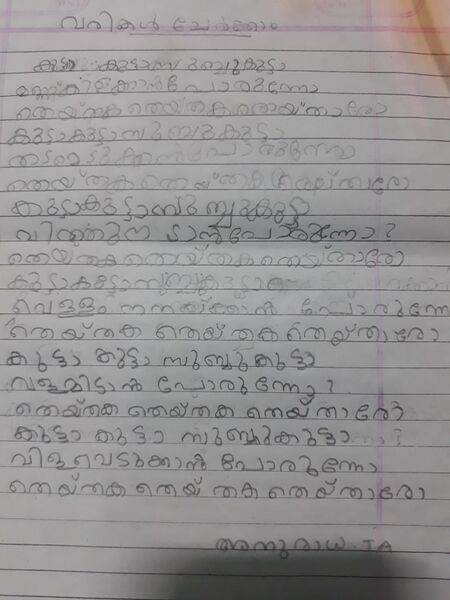 വരികൾ ചേർക്കാം
കുട്ടാ കുട്ടാ സുബ്ബുകുട്ടാ
മണ്ണ് കിളക്കാൻ പോരുന്നോ
തെയ്തക തെയ്തക തെയ്താരോ
കുട്ടാ കുട്ടാ സുബ്ബുകുട്ടാ
തടമെടുക്കാൻ പോരുന്നോ
തെയ്തക തെയ്തക തെയ്താരോ
കുട്ടാ കുട്ടാ സുബ്ബുകുട്ടാ
വിത്തു നടാൻ പോരുന്നോ?
തെയ്തക തെയ്തക തെയ്താരോ
കുട്ടാ കുട്ടാ സുബ്ബുകുട്ടാ
വെള്ളം നനയ്ക്കാൻ പോരുന്നോ
തെയ്തക തെയ്തക തെയ്താരോ
കുട്ടാ കുട്ടാ സുബ്ബുകുട്ടാ
വളമിടാൻ പോരുന്നോ?
തെയ്തക തെയ്തക തെയ്താരോ
കുട്ടാ കുട്ടാ സുബ്ബുകുട്ടാ
വിളവെടുക്കാൻ പോരുന്നോ
തെയ്തക തെയ്തക തെയ്താരോ
അനുരാധ. T A